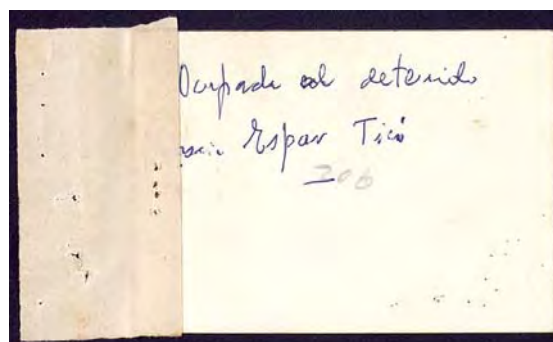 Ocupada al detenido
Espar Ticó
306